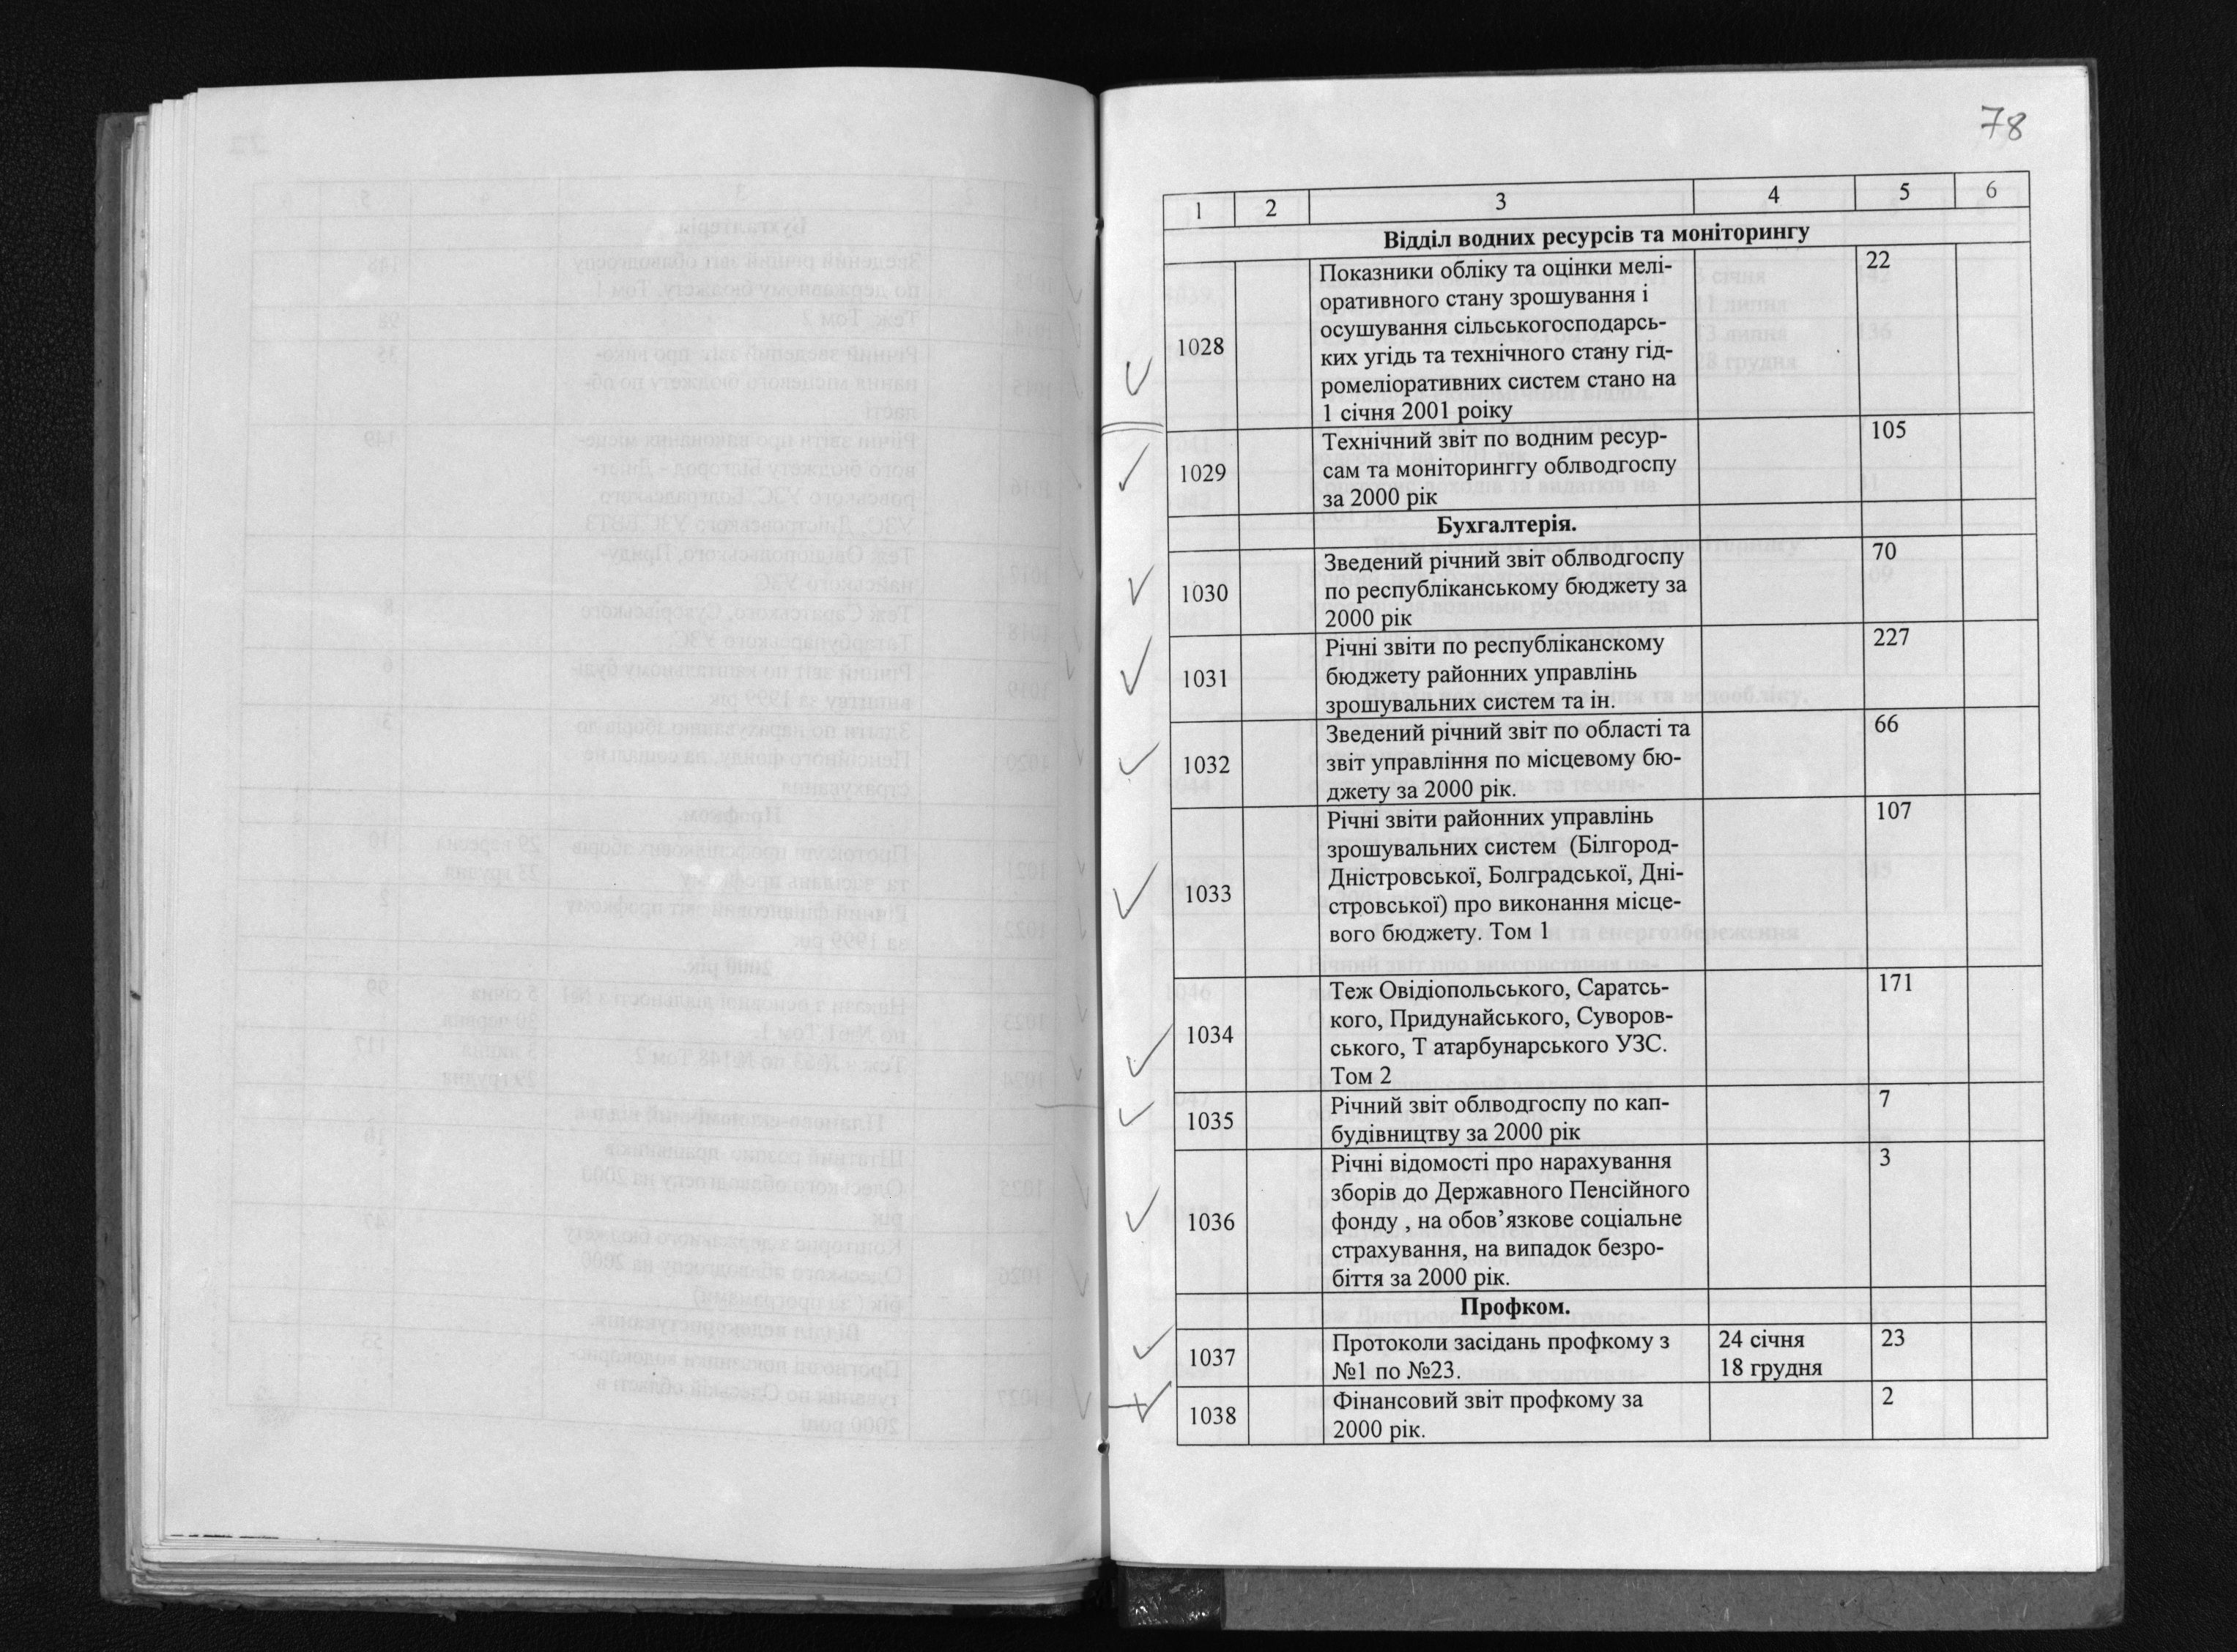 78
1 2 3 4 5 6
Відділ водних ресурсів та моніторингу
1028 Показники обліку та оцінки мелі- 22
оративного стану зрошування і
осушування сільськогосподарсь-
ких угідь та технічного стану гід-
ромеліоративних систем стано на
1 січня 2001 роіку
1029 Технічний звіт по водним ресур- 105
сам та моніторинггу облводгоспу
за 2000 рік
Бухгалтерія.
1030 Зведений річний звіт облводгоспу 70
по республіканському бюджету за
2000 рік
1031 Річні звіти по республіканскому 227
бюджету районних управлінь
зрошувальних систем та ін.
1032 Зведений річний звіт по області та 66
звіт управління по місцевому бю-
джету за 2000 рік.
1033 Річні звіти районних управлінь 107
зрошувальних систем (Білгород-
Дністровської, Болградської, Дні-
стровської) про виконання місце-
вого бюджету. Том 1
1034 Теж Овідіопольського, Саратсь- 171
кого, Придунайського, Суворов-
ського, Т атарбунарського УЗС.
Том 2
1035 Річний звіт облводгоспу по кап- 7
будівництву за 2000 рік
1036 Річні відомості про нарахування 3
зборів до Державного Пенсійного
фонду , на обов’язкове соціальне
страхування, на випадок безро-
біття за 2000 рік.
Профком.
1037 Протоколи засідань профкому з 24 січня 23
№1 по №23. 18 грудня
1038 Фінансовий звіт профкому за 2
2000 рік.